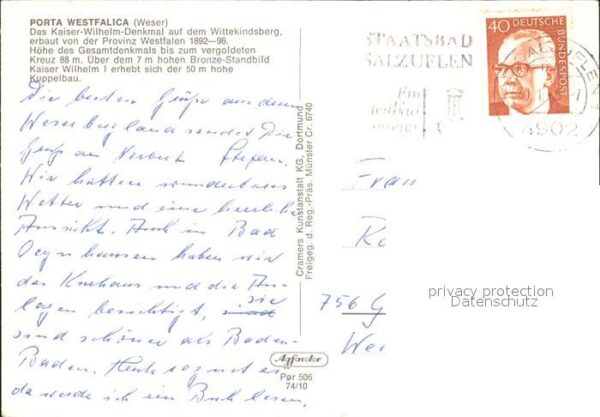 PORTA WESTFALICA (Weser)
Das Kaiser-Wilhelm-Denkmal auf dem Wittekindsberg,
erbaut von der Provinz Westfalen 1892—96.
Höhe des Gesamtdenkmals bis zum vergoldeten
Kreuz 88 m. Über dem 7 m hohen Bronze-Standbild
Kaiser Wilhelm I erhebt sich der 50 m hohe
Kuppelbau.
Die besten Grüße aus dem
Weserbergland sendet Dir
Stefan.
Wir hatten wunderbares
Wetter und eine herrliche
Aussicht. Auch in Bad
Oeynhausen haben wir
das Kurhaus und die An-
lagen besichtigt, sie
sind schöner als Baden-
Baden. Heute regnet es
da werde ich ein Buch lesen.
Cramers Kunstanstalt KG, Dortmund
Freigeg. d. Reg.-Präs. Münster Cr. 6740
STAATSBAD
SALZUFLEN
40
DEUTSCHE
BUNDESPOST
4902
Fran
756 G
Wei
privacy protection
Datenschutz
Pør 506
74/10